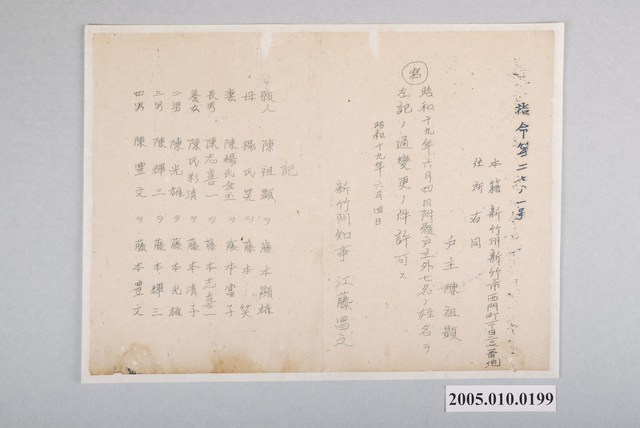 指令第二六一号
本籍 新竹州新竹市西門町 丁目 番地
住所 右同
戸主 陳祖顕
写
昭和十九年六月四日附願戸主外七名ノ姓名ヲ
左記ノ通変更ノ件許可ス
昭和十九年六月四日
新竹州知事 江藤昌之
記
願人 陳祖顕ヲ 藤本顕雄
母 楊氏笑ヲ 藤本笑
妻 陳楊氏 ヲ 藤本富子
長男 陳志喜一ヲ 藤本志喜一
養女 陳氏彩清ヲ 藤本清子
二男 陳光雄ヲ 藤本光雄
三男 陳輝三ヲ 藤本輝三
四男 陳豊文ヲ 藤本豊文
2005.010.0199